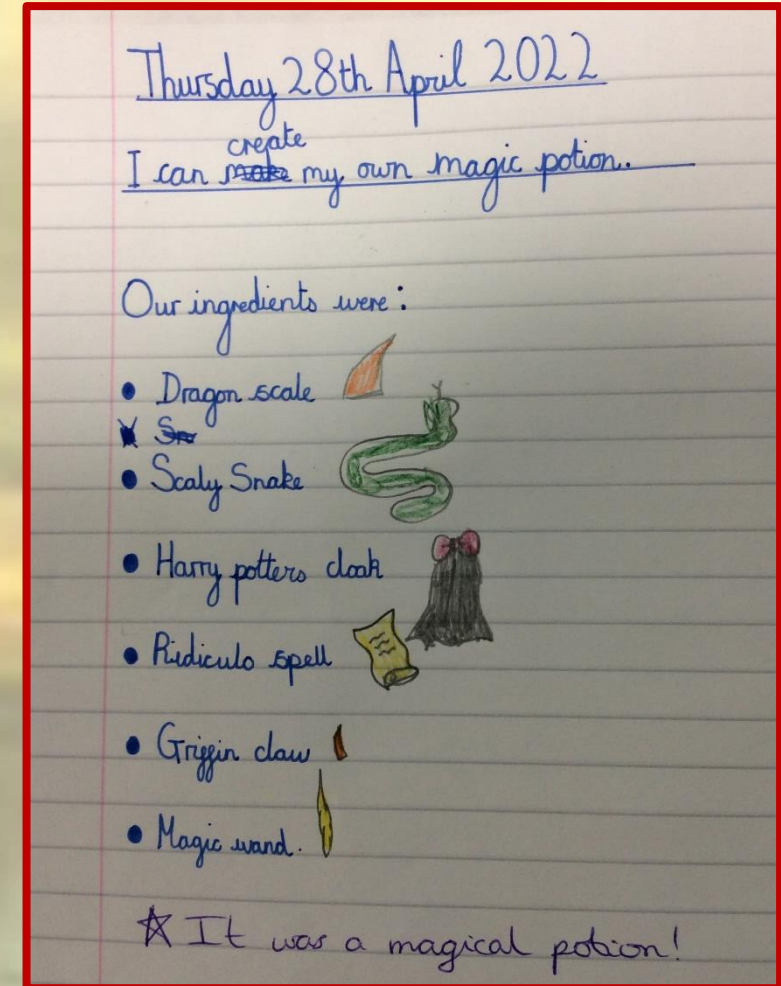 Thursday 28th April 2022
create
I can make my own magic potion.
Our ingredients were:
• Dragon scale
Sn
• Scaly Snake
• Harry potters cloak
• Ridiculo spell
• Griffin claw
• Magic wand.
☆ It was a magical potion!